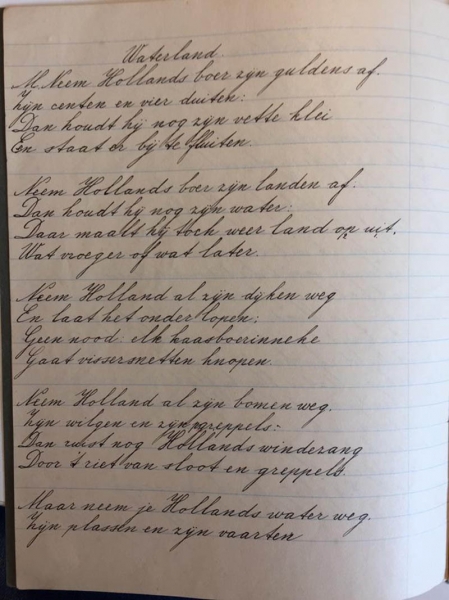 Waterland.
M Neem Hollands boer zijn guldens af.
Zijn centen en vier duiten:
Dan houdt hij nog zijn vette klei
En staat er bij te fluiten.
Neem Hollands boer zijn landen af.
Dan houdt hij nog zijn water:
Daar maalt hij toch weer land op uit.
Wat vroeger of wat later.
Neem Holland al zijn dijken weg
En laat het onder lopen:
Geen nood: elk kaasboerinneke
Gaat vissersnetten knopen.
Neem Holland al zijn bomen weg.
Zijn wilgen en zijn greppels:
Dan ruist nog Hollands winderzang
Door 't riet van sloot en greppels.
Maar neem je Hollands water weg.
Zijn plassen en zijn vaarten